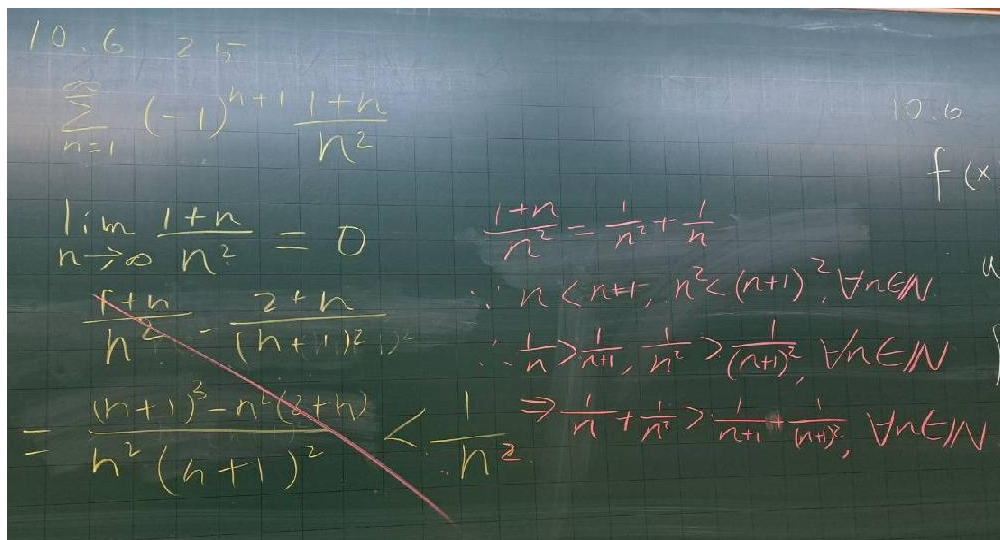 10.6 25
∑_{n=1}^{∞} (-1)^{n+1} \frac{1+n}{n^2}
lim_{n→∞} \frac{1+n}{n^2} = 0
\frac{1+n}{n^2} - \frac{2+n}{(n+1)^2}
= \frac{(n+1)^3 - n^2(2+n)}{n^2(n+1)^2} < \frac{1}{n^2}
\frac{1+n}{n^2} = \frac{1}{n^2} + \frac{1}{n}
∵ n < n+1, n^2 < (n+1)^2, ∀n∈ℕ
∴ \frac{1}{n} > \frac{1}{n+1}, \frac{1}{n^2} > \frac{1}{(n+1)^2}, ∀n∈ℕ
⇒ \frac{1}{n} + \frac{1}{n^2} > \frac{1}{n+1} + \frac{1}{(n+1)^2}, ∀n∈ℕ
10.6
f(x